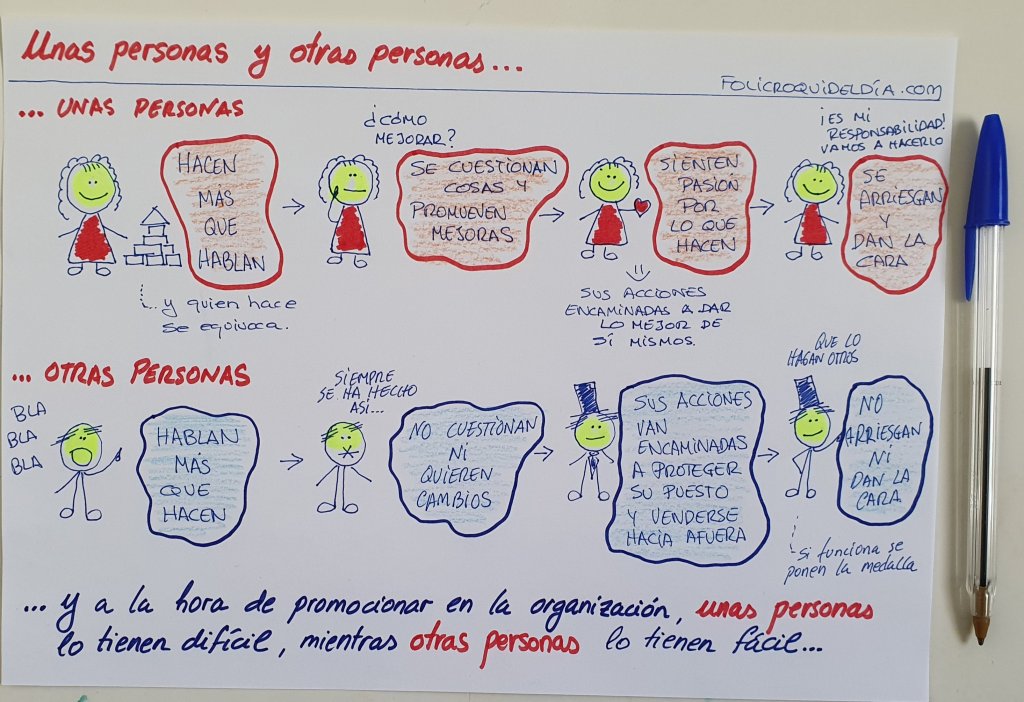 Unas personas y otras personas...
FOLICROQUIDELDÍA.COM
... UNAS PERSONAS
HACEN
MÁS
QUE
HABLAN
... y quien hace
se equivoca.
¿CÓMO
MEJORAR?
SE CUESTIONAN
COSAS Y
PROMUEVEN
MEJORAS
SIENTEN
PASIÓN
POR
LO QUE
HACEN
SUS ACCIONES
ENCAMINADAS A DAR
LO MEJOR DE
SÍ MISMOS.
¡ES MI
RESPONSABILIDAD!
VAMOS A HACERLO
SE
ARRIESGAN
Y
DAN LA
CARA
... OTRAS PERSONAS
BLA
BLA
BLA
HABLAN
MÁS
QUE
HACEN
SIEMPRE
SE HA HECHO
ASÍ...
NO CUESTIONAN
NI
QUIEREN
CAMBIOS
SUS ACCIONES
VAN
ENCAMINADAS
A PROTEGER
SU PUESTO
Y VENDERSE
HACIA AFUERA
QUE LO
HAGAN OTROS
NO
ARRIESGAN
NI
DAN LA
CARA
Si funciona se
ponen la medalla
... y a la hora de promocionar en la organización, unas personas
lo tienen difícil, mientras otras personas lo tienen fácil...